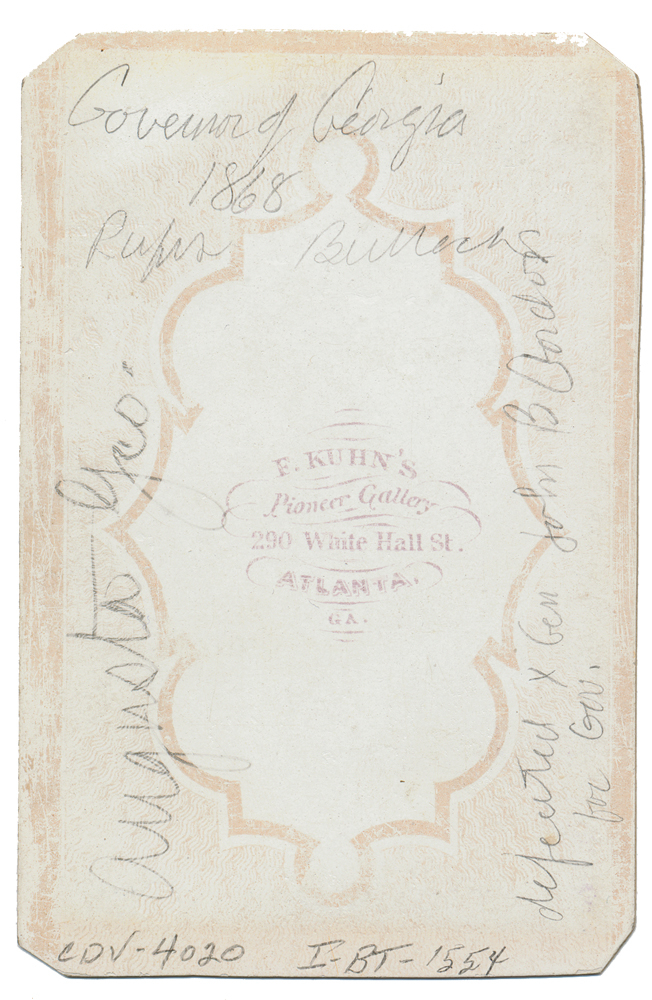 Governor of Georgia
1868
Rufus Bullock
Augusta Geo.
F. KUHN'S
Pioneer Gallery
290 White Hall St.
ATLANTA,
GA.
defeated X Gen John B Gordon
for Gov.
CDV-4020 I-BT-1554